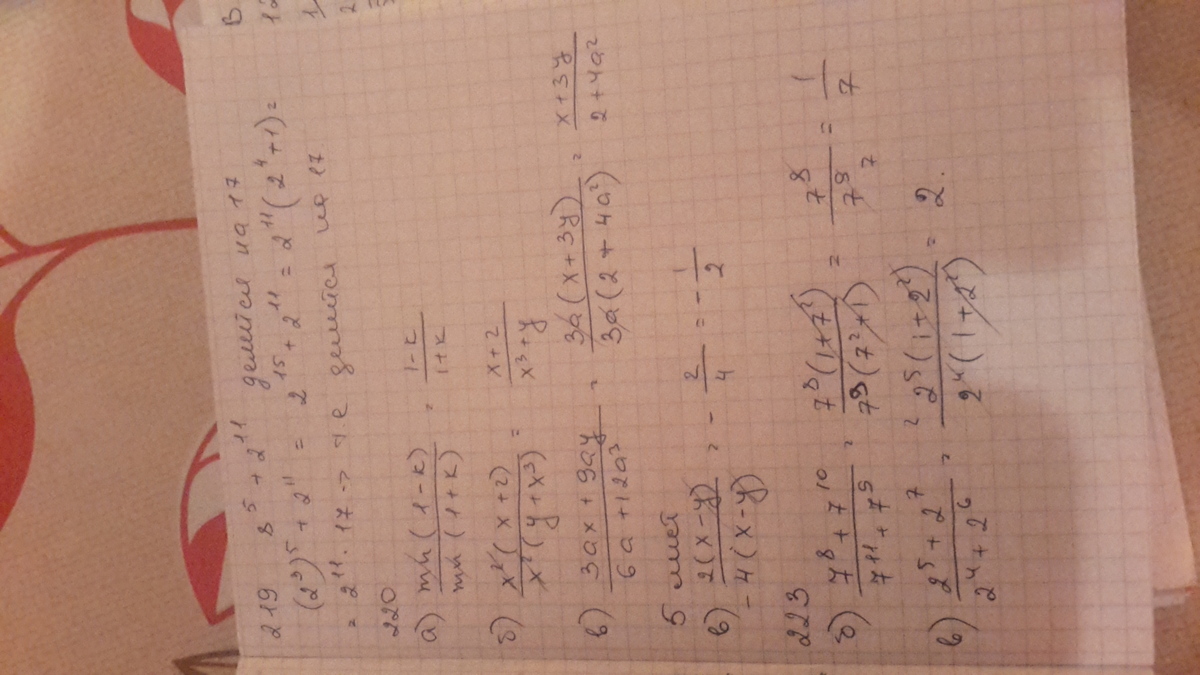 219 8⁵ + 2¹¹ делится на 17
(2³)⁵ + 2¹¹ = 2¹⁵ + 2¹¹ = 2¹¹(2⁴+1) =
= 2¹¹ · 17 -> т.е делится на 17
220
а) mn(1-k)/mn(1+k) = 1-k/1+k
б) x²(x+2)/x²(y+x³) = x+2/x³+y
в) 3ax + 9ay/6a + 12a³ = 3a(x+3y)/3a(2+4a²) = x+3y/2+4a²
5
в) 2(x-y)/-4(x-y) = - 2/4 = - 1/2
223
б) 7⁸ + 7¹⁰/7¹¹ + 7⁹ = 7⁸(1+7²)/7⁹(7²+1) = 7⁸/7⁹ = 1/7
7
в) 2⁵ + 2⁷/2⁴ + 2⁶ = 2⁵(1+2²)/2⁴(1+2²) = 2.
В
1
2